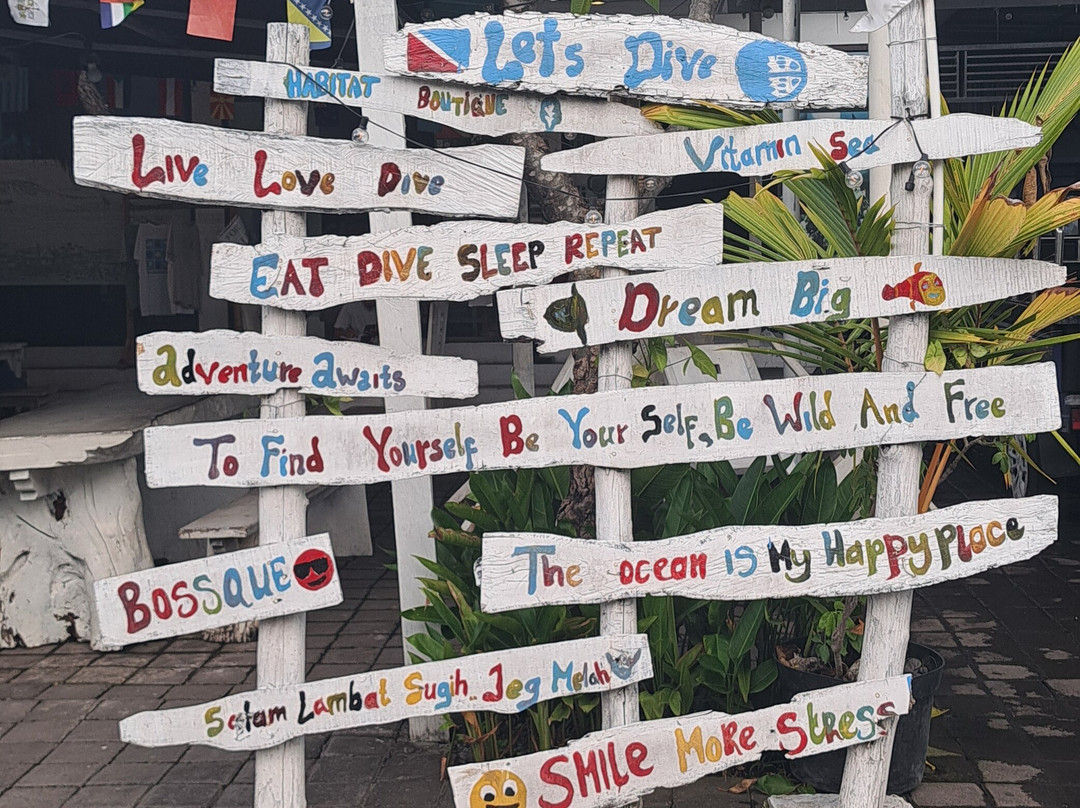 Lets Dive
HABITAT BOUTIQUE
Live Love Dive
Vitamin Sea
EAT DIVE SLEEP REPEAT
Dream Big
adventure awaits
To Find Yourself Be Your Self, Be Wild And Free
The ocean is My Happy Place
BOSSQUE
Selam Lambat Sugih.. Jeg Melah
SMILE MoRe StReSS